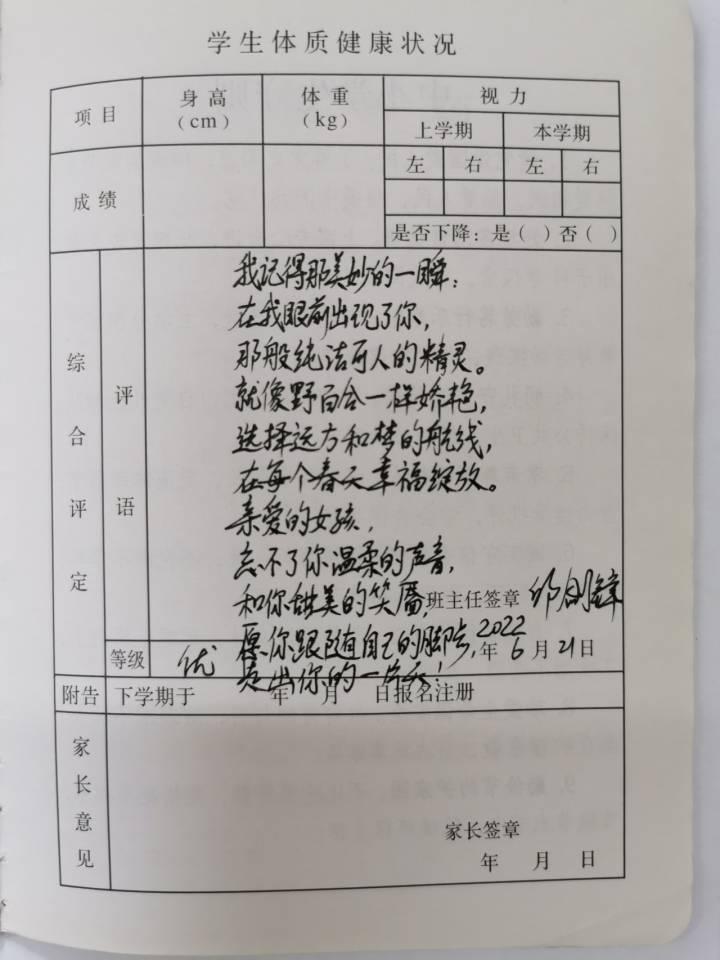 学生体质健康状况
项目 身高(cm) 体重(kg) 视力
上学期 本学期
左 右 左 右
成绩
是否下降：是（ ）否（ ）
综合评定
评语
我记得那美妙的一瞬：
在我眼前出现了你，
那般纯洁可人的精灵。
就像野百合一样娇艳，
选择远方和梦的航线，
在每个春天幸福绽放。
亲爱的女孩，
忘不了你温柔的声音，
和你甜美的笑靥，
班主任签章
愿你跟随自己的脚步，
2022年6月21日
走出你的一片天！
等级 优
附告 下学期于 年 月 日报名注册
家长意见
家长签章
年 月 日